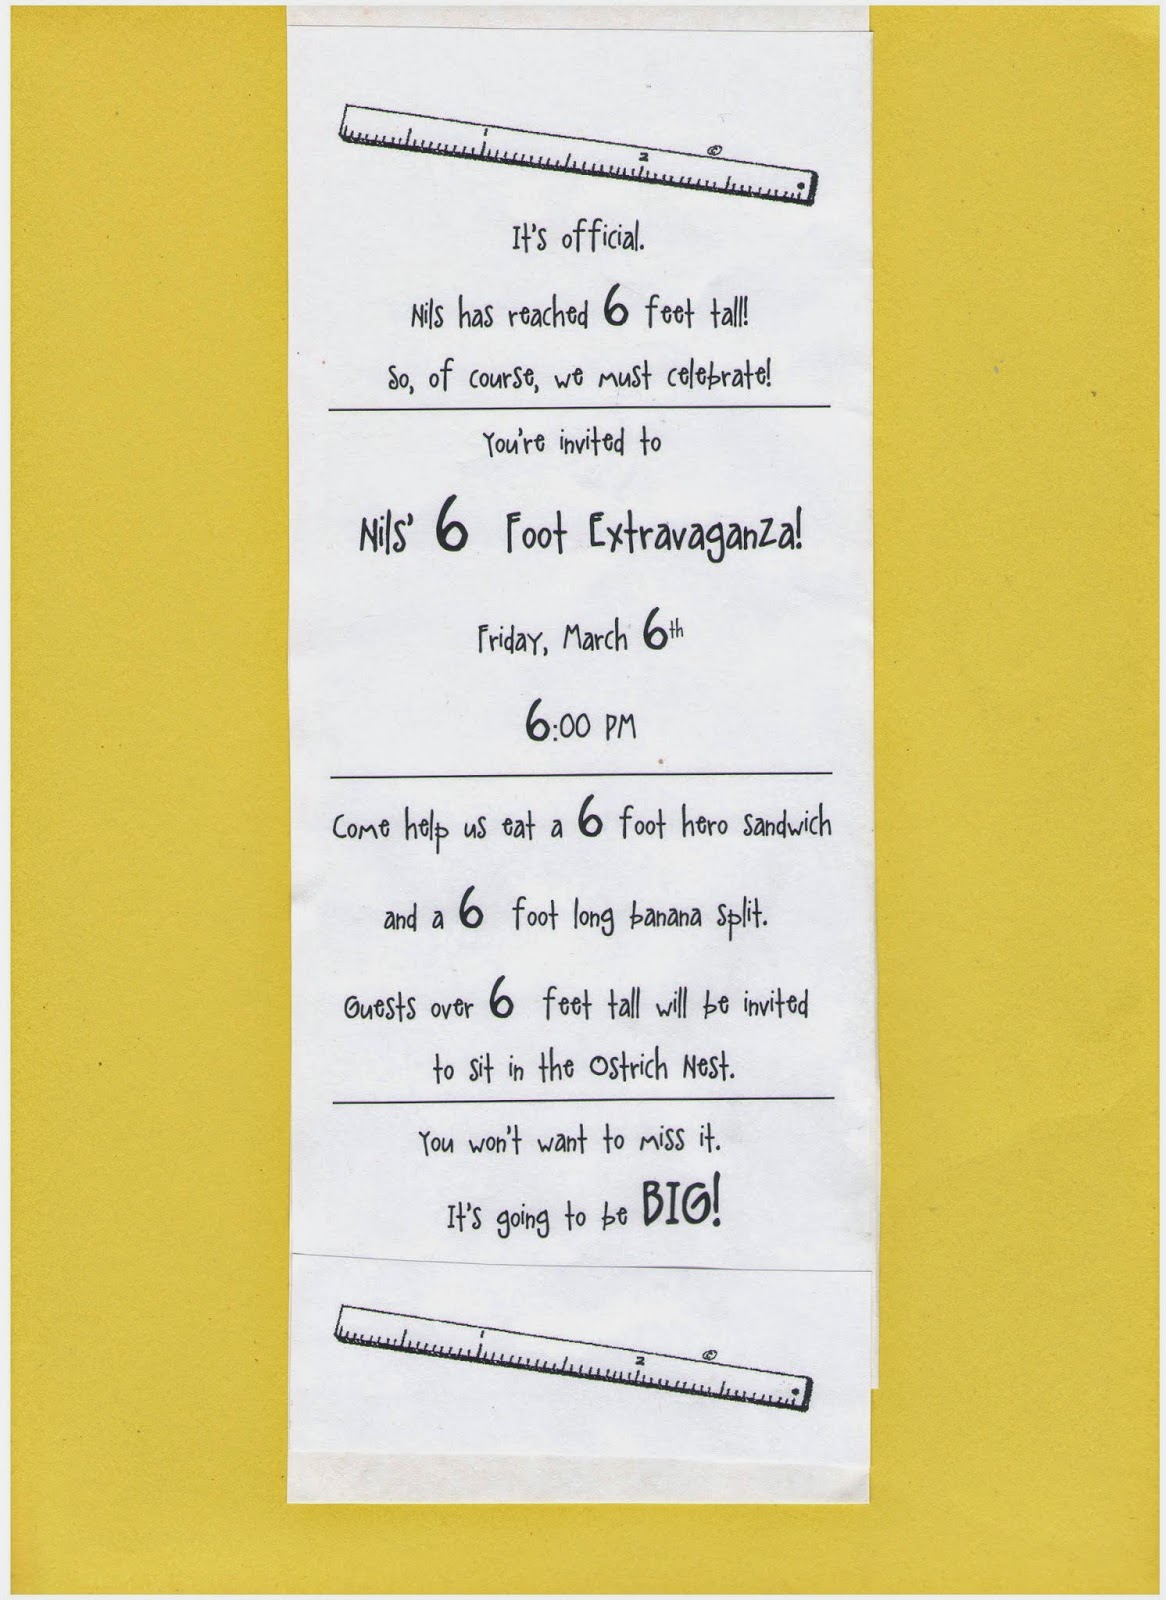 1
2
©
It's official.
Nils has reached 6 feet tall!
So, of course, we must celebrate!
You're invited to
Nils' 6 Foot Extravaganza!
Friday, March 6th
6:00 PM
Come help us eat a 6 foot hero sandwich
and a 6 foot long banana split.
Guests over 6 feet tall will be invited
to sit in the Ostrich Nest.
You won't want to miss it.
It's going to be BIG!
1
2
©